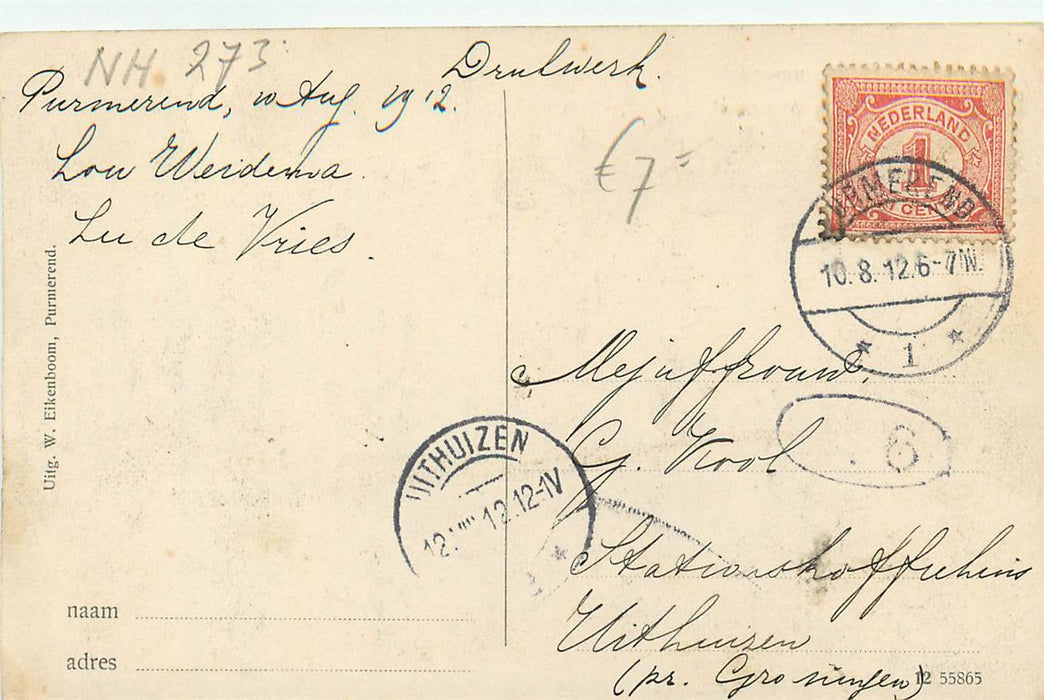 NH 273
Drukwerk.
Purmerend, 10 Aug. 1912.
Lou Weidema.
Lu de Vries.
€7=
NEDERLAND
1
CENT
PURMEREND
10.8.12.6-7N.
1
Uitg. W. Eikenboom, Purmerend.
Mejuffrouw.
G. Kool
6
UITHUIZEN
12.VIII.12.12-1V
Stationskoffiehuis
Uithuizen
(pr. Groningen)
naam
adres
12 55865